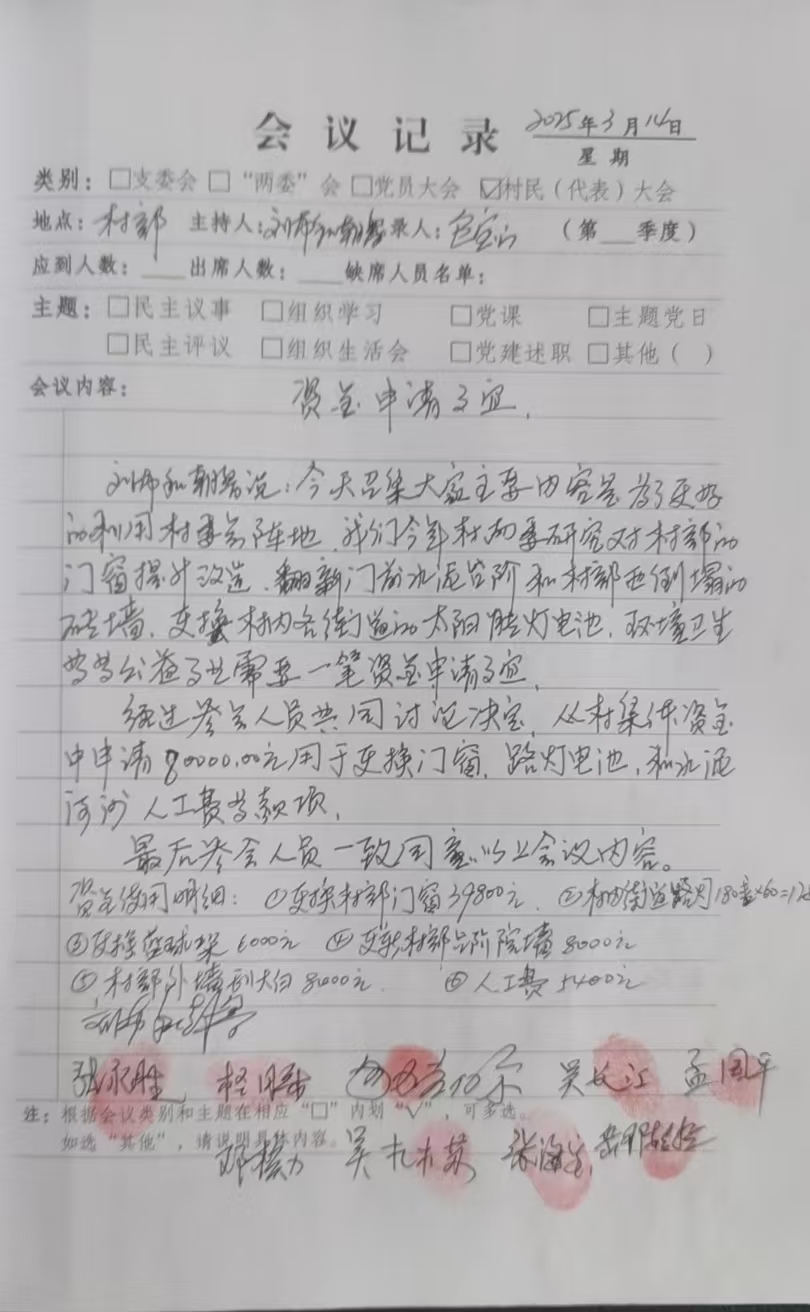 会议记录 2025年3月14日
星期
类别：□支委会 □“两委”会 □党员大会 ☑村民（代表）大会
地点：村部 主持人： 录人：包宝山 （第__季度）
应到人数：____出席人数：____缺席人员名单：
主题：□民主议事 □组织学习 □党课 □主题党日
□民主评议 □组织生活会 □党建述职 □其他（ ）
会议内容： 资金申请事宜，
说：今天召集大家主要内容是为了更好
的利用村委会阵地，我们今年村两委研究对村部的
门窗提升改造、翻新门前水泥台阶和村部西倒塌的
砖墙，更换村内各街道的太阳能灯电池，环境卫生
等等公益事业需要一笔资金申请事宜，
经过参会人员共同讨论决定，从村集体资金
中申请80000.00元用于更换门窗，路灯电池，和水泥
河沙人工费等款项，
最后参会人员一致同意以上会议内容。
资金使用明细：①更换村部门窗39800元 ②村内街道路灯180×60=
③更换篮球架6000元 ④更新村部台阶院墙8000元
⑤村部外墙刮大白8000元 ⑥人工费5400元
张永胜 吴长江 孟国平
注：根据会议类别和主题在相应“□”内划“√”，可多选。
如选“其他”，请说明具体内容。
吴扎木苏 张海宝